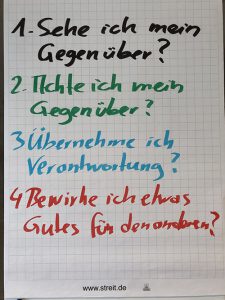 1. Sehe ich mein
Gegenüber?
2. Achte ich mein
Gegenüber?
3 Übernehme ich
Verantwortung?
4 Bewirke ich etwas
Gutes für den anderen?
www.streit.de